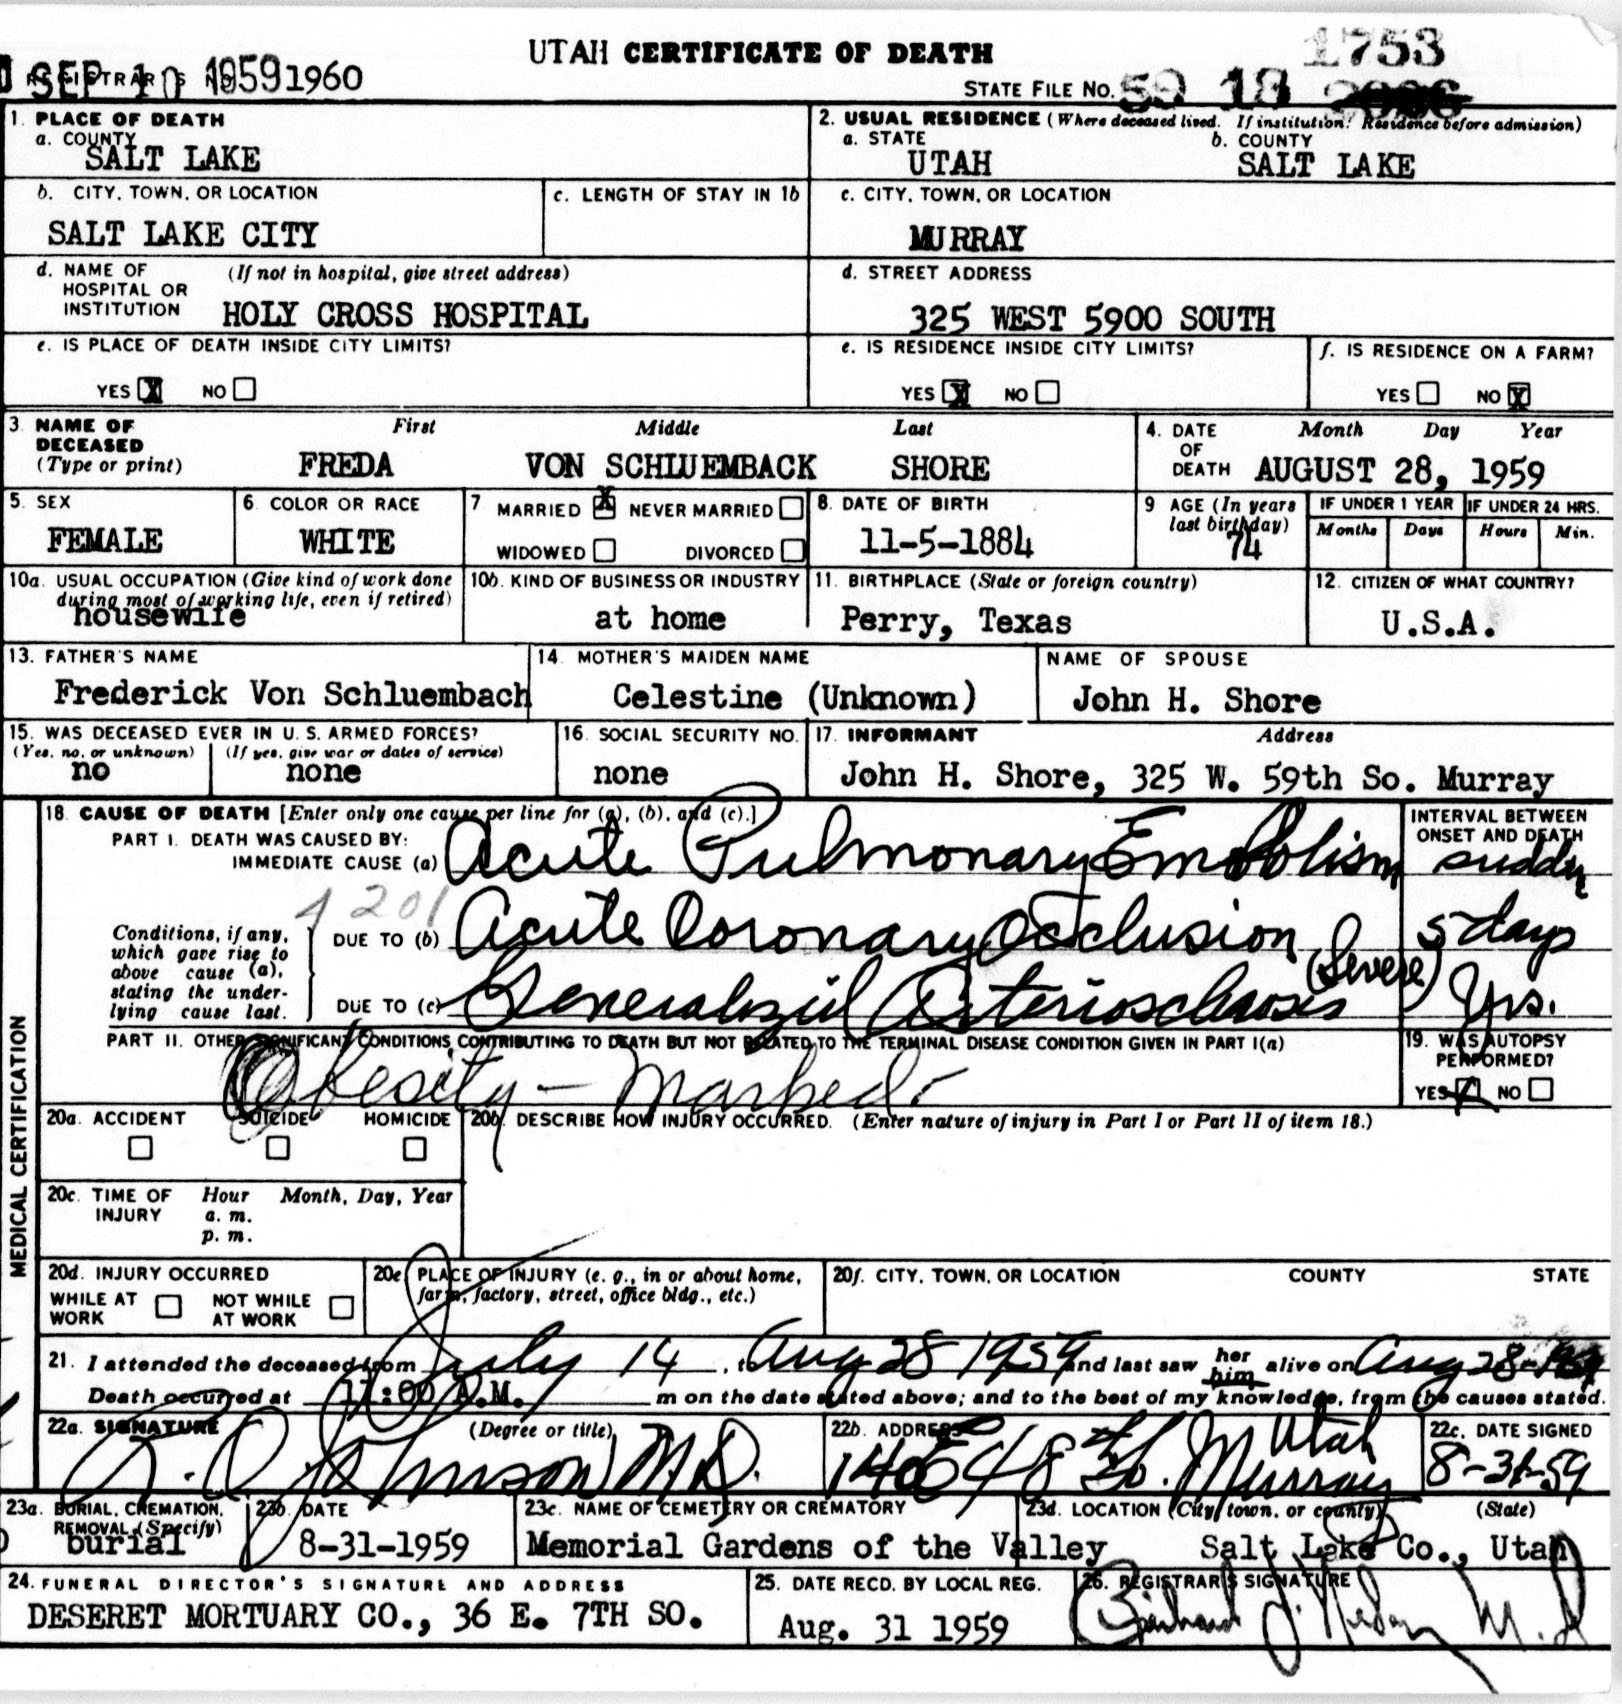 UTAH CERTIFICATE OF DEATH
1753
SEP 10 1959 1960
STATE FILE No. 59 18
1. PLACE OF DEATH
a. COUNTY
SALT LAKE
2. USUAL RESIDENCE (Where deceased lived. If institution: Residence before admission)
a. STATE b. COUNTY
UTAH SALT LAKE
b. CITY, TOWN, OR LOCATION
SALT LAKE CITY
c. LENGTH OF STAY IN 1b
c. CITY, TOWN, OR LOCATION
MURRAY
d. NAME OF HOSPITAL OR INSTITUTION (If not in hospital, give street address)
HOLY CROSS HOSPITAL
d. STREET ADDRESS
325 WEST 5900 SOUTH
e. IS PLACE OF DEATH INSIDE CITY LIMITS?
YES X NO
e. IS RESIDENCE INSIDE CITY LIMITS?
YES X NO
f. IS RESIDENCE ON A FARM?
YES NO X
3. NAME OF DECEASED (Type or print)
First Middle Last
FREDA VON SCHLUEMBACK SHORE
4. DATE OF DEATH Month Day Year
AUGUST 28, 1959
5. SEX
FEMALE
6. COLOR OR RACE
WHITE
7 MARRIED X NEVER MARRIED
WIDOWED DIVORCED
8. DATE OF BIRTH
11-5-1884
9 AGE (In years last birthday)
74
IF UNDER 1 YEAR
Months Days
IF UNDER 24 HRS.
Hours Min.
10a. USUAL OCCUPATION (Give kind of work done during most of working life, even if retired)
housewife
10b. KIND OF BUSINESS OR INDUSTRY
at home
11. BIRTHPLACE (State or foreign country)
Perry, Texas
12. CITIZEN OF WHAT COUNTRY?
U.S.A.
13. FATHER'S NAME
Frederick Von Schluembach
14. MOTHER'S MAIDEN NAME
Celestine (Unknown)
NAME OF SPOUSE
John H. Shore
15. WAS DECEASED EVER IN U. S. ARMED FORCES?
(Yes, no, or unknown) (If yes, give war or dates of service)
no none
16. SOCIAL SECURITY NO.
none
17. INFORMANT Address
John H. Shore, 325 W. 59th So. Murray
MEDICAL CERTIFICATION
18. CAUSE OF DEATH [Enter only one cause per line for (a), (b), and (c).]
PART I. DEATH WAS CAUSED BY:
IMMEDIATE CAUSE (a) Acute Pulmonary Embolism
INTERVAL BETWEEN ONSET AND DEATH
sudden
4201
Conditions, if any, which gave rise to above cause (a), stating the underlying cause last.
DUE TO (b) Acute Coronary Occlusion
5 days
DUE TO (c) Generalized Arteriosclerosis (Severe)
Yrs.
PART II. OTHER SIGNIFICANT CONDITIONS CONTRIBUTING TO DEATH BUT NOT RELATED TO THE TERMINAL DISEASE CONDITION GIVEN IN PART I(a)
Obesity - Marked -
19. WAS AUTOPSY PERFORMED?
YES X NO
20a. ACCIDENT SUICIDE HOMICIDE
20b. DESCRIBE HOW INJURY OCCURRED. (Enter nature of injury in Part I or Part II of item 18.)
20c. TIME OF INJURY Hour Month, Day, Year
a. m.
p. m.
20d. INJURY OCCURRED
WHILE AT WORK NOT WHILE AT WORK
20e. PLACE OF INJURY (e. g., in or about home, farm, factory, street, office bldg., etc.)
20f. CITY, TOWN, OR LOCATION COUNTY STATE
21. I attended the deceased from July 14, to Aug 28 1959 and last saw her him alive on Aug 28-1959
Death occurred at 11:00 A.M. m on the date stated above; and to the best of my knowledge, from the causes stated.
22a. SIGNATURE (Degree or title)
Johnson M.D.
22b. ADDRESS
48 So. Murray Utah
22c. DATE SIGNED
8-31-59
23a. BURIAL, CREMATION, REMOVAL (Specify)
burial
23b. DATE
8-31-1959
23c. NAME OF CEMETERY OR CREMATORY
Memorial Gardens of the Valley
23d. LOCATION (City, town, or county) (State)
Salt Lake Co., Utah
24. FUNERAL DIRECTOR'S SIGNATURE AND ADDRESS
DESERET MORTUARY CO., 36 E. 7TH SO.
25. DATE RECD. BY LOCAL REG.
Aug. 31 1959
26. REGISTRAR'S SIGNATURE
M.D